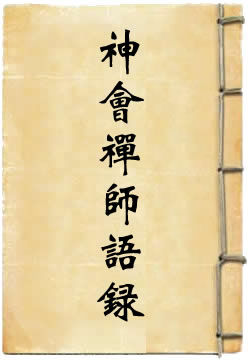 神會禪師語録